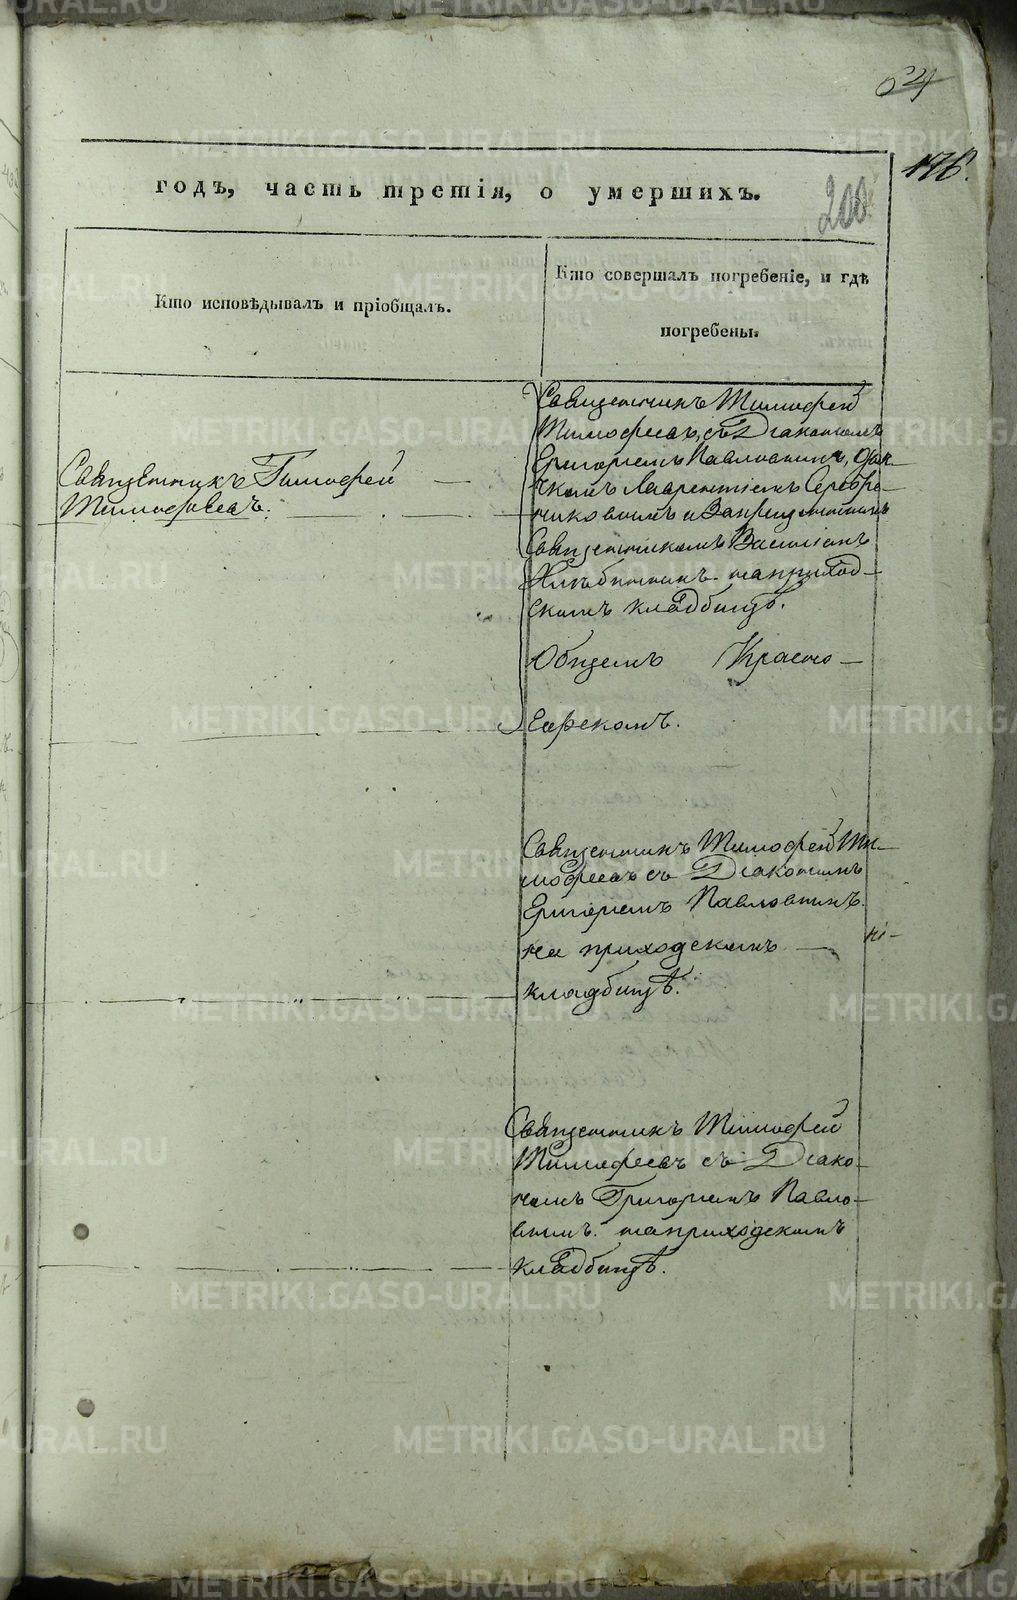 176.
годъ, часть третія, о умершихъ.
200
Кто исповѣдывалъ и пріобщалъ.
Кто совершалъ погребеніе, и гдѣ
погребены.
Священникъ Тимофей
Тимофеевъ.
Священникъ Тимофей
Тимофеевъ, съ Діакономъ
Григоріемъ Павловымъ,
Лаврентіемъ Серебре-
никовымъ и Запрещеннымъ
Священникомъ Василіемъ
Хлѣбинымъ на приход-
скомъ кладбищѣ.
Общемъ Красно-
ярскомъ.
Священникъ Тимофей Ти-
мофеевъ съ Діакономъ
Григоріемъ Павловымъ.
на приходскомъ
кладбищѣ.
Священникъ Тимофей
Тимофеевъ съ Діако-
номъ Григоріемъ Павло-
вымъ на приходскомъ
кладбищѣ.
METRIKI.GASO-URAL.RU